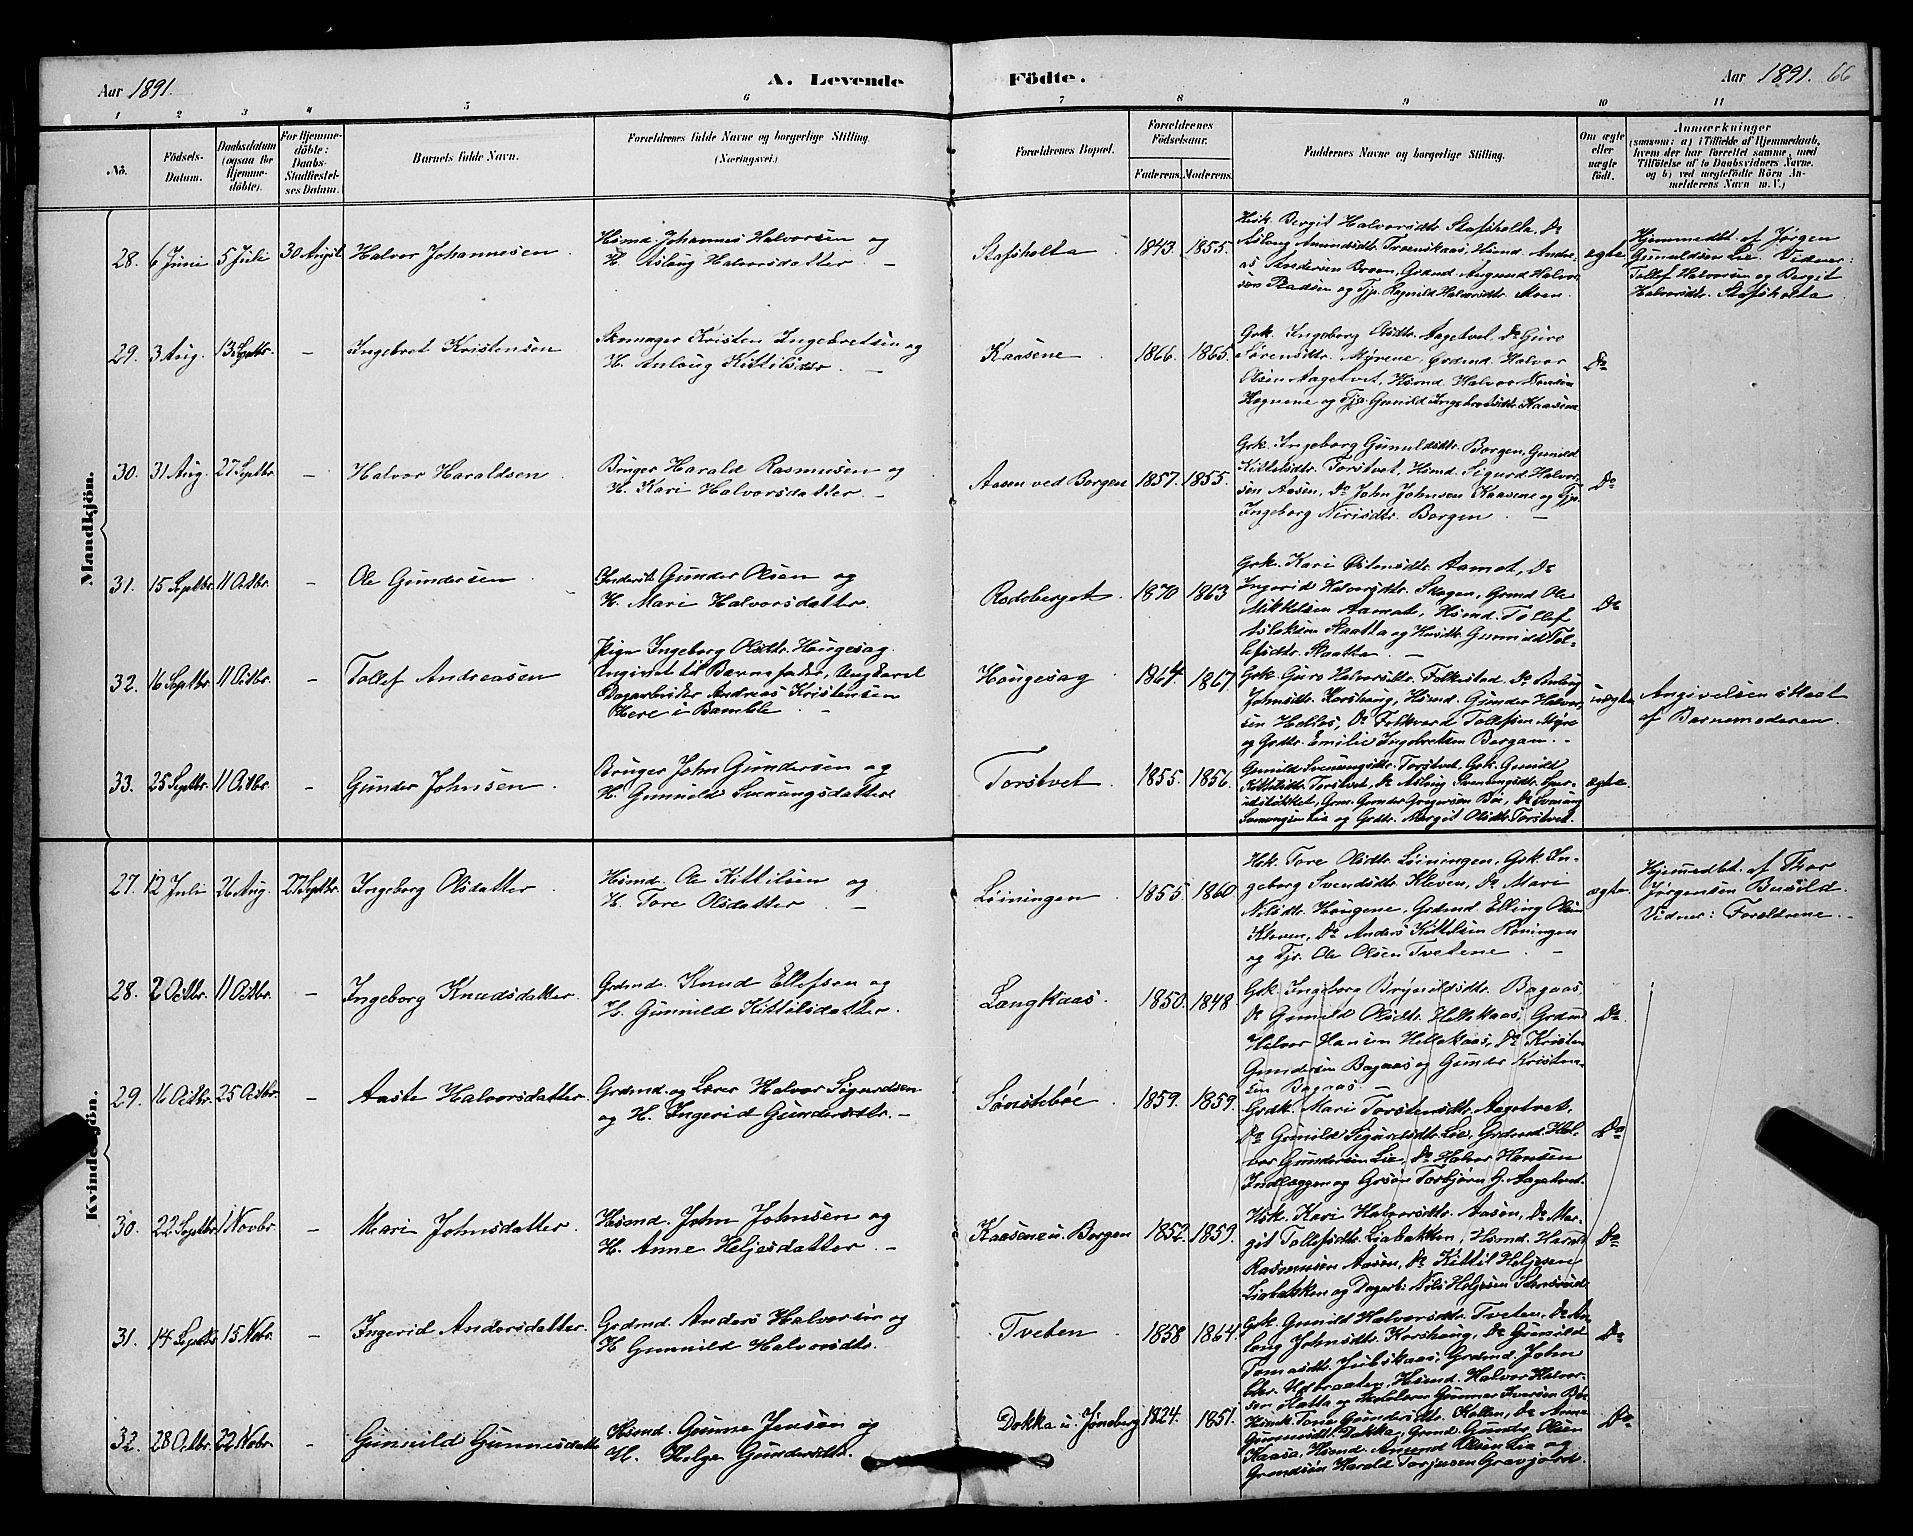 Aar 1891. A. Levende Födte. Aar 1891. 66
1 2 3 4 5 6 7 8 9 10 11
No. Födsels-Datum. Daabsdatum (ogsaa for Hjemmedöbte). For Hjemmedöbte: Daabs-Stadfæstelses Datum. Barnets fulde Navn. Forældrenes fulde Navne og borgerlige Stilling. (Næringsvei.) Forældrenes Bopæl. Forældrenes Födselsaar. Faderens. Moderens. Faddernes Navne og borgerlige Stilling. Om ægte eller uægte födt. Anmærkninger (saasom: a) i Tilfælde af Hjemmedaab, hvem der har forrettet samme, med Tilföielse af to Daabsvidners Navne. og b) ved uægtefödte Börn Anmelderens Navn m. V.)
Mandkjön.
28. 6 Juni 5 Juli 30 August Halvor Johannesen
Husmd. Johannes Halvorsen og
H. Aslaug Halvorsdatter. –
Stafsholta 1843. 1855.
Husk. Bergit Halvorsdtr. Stafsholta, Do
Aslaug Amundsdtr. Torenskaas, Husmd. Andre-
as Andersen Broen, Grdmd. Augund Halvor-
sen Pladsen og Tjp. Ragnild Halvorsdtr. Moen.
ægte
Hjemmedbt. af Jørgen
Gunuldsen Lie. Vidner:
Tollef Halvorsen og Bergit
Halvorsdtr. Stafsholta
29. 3 Aug. 13 Septbr. – Ingebret Kristensen
Skomager Kristen Ingebretsen og
H. Anlaug Kittilsdtr. –
Kaasene 1866. 1865.
Grk. Ingeborg Olsdtr. Aagetvet, Do Guro
Sørensdtr. Myrene, Grdmd. Halvor
Olsen Aagetvet, Husmd. Halvor
Haguene og Tjp. Gunild Ingebretsdtr. Kaasene
Do
30. 31 Aug. 27 Septbr. – Halvor Haraldsen
Bruger Harald Rasmusen og
H. Kari Halvorsdatter –
Aasen ved Borgen 1857. 1855.
Grk. Ingeborg Gunuldsdtr. Borgen, Gunild
Kittelsdtr. Torstvet, Husmd. Sigurd Halvor-
sen Aasen, Do John Johnsen Kaasene og Tjp.
Ingeborg Nirisdtr. Borgen. –
Do
31. 15 Septbr. 11 Octbr. – Ole Gundersen
Inderst Gunder Olsen og
H. Mari Halvorsdatter.
Rodsberget 1870 1863
Grk. Kari Østensdtr. Aamot, Do
Ingerid Halvorsdtr. Skogen, Grmd. Ole
Mikkelsen Aamot, Husmd. Tollef
Aslaksen Skaatta og Husdtr. Gunild Tol-
lefsdtr. Skaatta. –
Do
32. 16 Septbr. 11 Octbr. – Tollef Andreasen
Pige Ingeborg Olsdtr. Hougesag.
Angivet til Barnefader, Ungkarl
Dagarbeider Andreas Kristensen
Here i Bamble. –
Hougesag 1864. 1867.
Grk. Guro Halvorsdtr. Folkestad, Do Anlaug
Johnsdtr. Korshaug, Husmd. Gunder Halvor-
sen Holtes, Do Folkvard Tollefsen Myre
og Grdtr. Emilie Ingebretsen Bergan. –
uægte
Angivelsen skeet
af Barnemoderen.
33. 25 Septbr. 11 Octbr. – Gunder Johnsen
Bruger John Gundersen og
H. Gunnild Svenungsdatter
Torstvet 1855. 1856.
Gunild Svenungsdtr. Torstvet, Grk. Gunild
Kittilsdtr. Torstvet, Do Aslaug Svenungsdtr.
Grm. Gunder Gregersen Bø, Do Svenung
Svenungsen Lia og Grdtr. Margit Olsdtr. Torstvet.
ægte.
Kvindekjön.
27. 12 Juli 26 Aug. 27 Septbr. Ingeborg Olsdatter
Husmd. Ole Kittilsen og
H. Tore Olsdatter. –
Løiningen 1855. 1860
Husk. Tore Olsdtr. Løiningen, Grk. In-
geborg Svendsdtr. Kleven, Do Mari
Nilsdtr. Hougene, Grdmd. Elling Olsen
Kleven, Do Anders Kittilsen Roningen
og Tjp. Ole Olsen Tvetene. –
ægte
Hjemmedbt. af Thor
Jørgensen Busild.
Vidner: Forældrene. –
28. 2 Octbr. 11 Octbr. – Ingeborg Knudsdatter.
Grdmd. Knud Ellefsen og
H. Gunnild Kittilsdatter.
Langkaas. 1850. 1848.
Grk. Ingeborg Brynildsdtr. Bagaas,
Do Gunild Olsdtr. Hellekaas, Grdmd
Halvor Hansen Hellekaas, Do Kristen
Gundersen Bagaas og Gunder Kristen-
sen Bagaas. –
Do
29. 16 Octbr. 25 Octbr. – Aaste Halvorsdatter.
Grdmd. og Lærer Halvor Sigurdsen
og H. Ingerid Gundersdtr. –
Sønstebøe 1859. 1859.
Grdk. Mari Torstensdtr. Aagetvet,
Do Gunild Sigurdsdtr. Lie, Grdmd. Hal-
vor Gundersen Lie, Do Halvor Hansen
Indlæggen og Grsøn Torbjørn G. Aagetvet.
Do
30. 22 Septbr. 1 Novbr. – Mari Johnsdatter.
Husmd. John Johnsen og
H. Anne Heljesdatter. –
Kaasene u. Borgen 1852. 1859.
Husk. Kari Halvorsdtr. Aasen, Do Mar-
git Tollefsdtr. Liabakken, Husmd. Harald
Rasmusen Aasen, Do Kittil Heljesen
Liabakken og Dagarb. Nils Heljesen
Do
31. 14 Septbr. 15 Nobr. – Ingerid Andersdatter.
Grdmd. Anders Halvorsen og
H Gunnild Halvorsdtr.
Tveten 1858 1864.
Grk. Gunild Halvorsdtr. Tveten, Do An-
laug Johnsdtr. Korshaug, Do Gunild
Tomasdtr. Juvskaas, Grdmd. John
Husmd. Halvor Halvor-
sen Gunnar Iversen
Do
32. 28 Octbr. 22 Nobr. – Gunnild Gunnesdatter
Husmd. Gunne Jensen og
H. Helge Gundersdtr.
Dokka u. Jønsberg 1824. 1851.
Husmk. Tone Gundersdtr. Kollen, Do Anne
Dokka, Grmd. Gunder Olsen
Kaasa, Husmd. Amund Olsen Lia og
Grmdsøn Harald Torjusen Gravjord.
Do